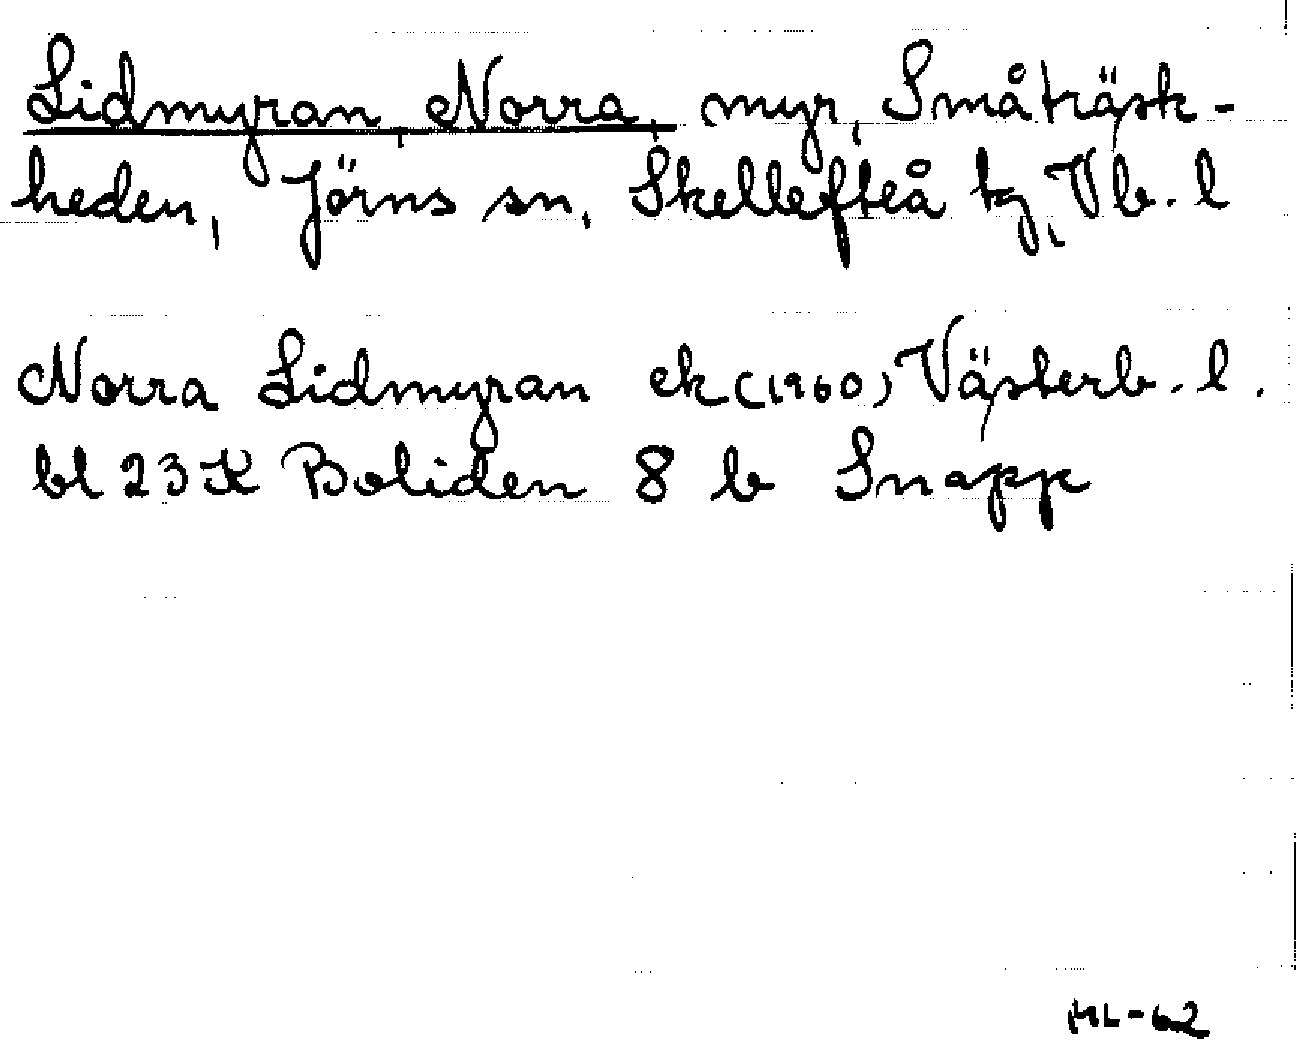 Lidmyran, Norra, myr, Småträsk-
heden, Jörns sn, Skellefteå tg, Vb. l
Norra Lidmyran ek (1960) Västerb. l.
bl 23 K Boliden 8 b Snapp
ML-62